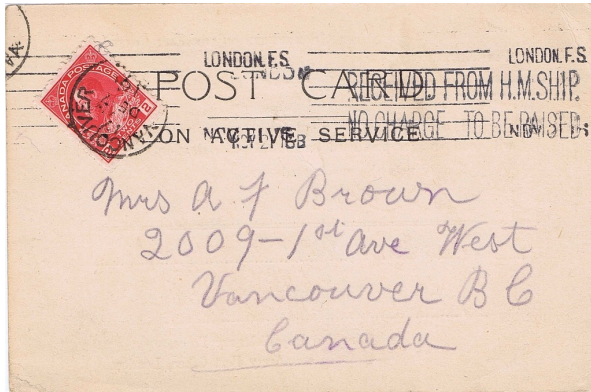 LONDON.F.S. LONDON.F.S.
POST CARD
RECEIVED FROM H.M.SHIP.
NO CHARGE TO BE RAISED
ON ACTIVE SERVICE
CANADA POSTAGE
VANCOUVER
Mrs A F Brown
2009-1st Ave West
Vancouver B C
Canada